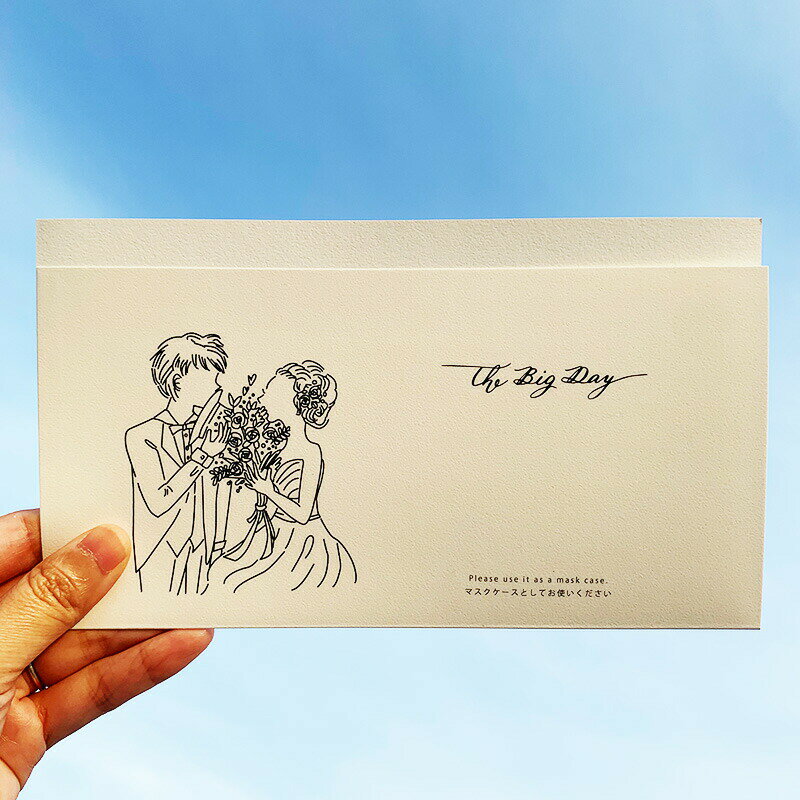 The Big Day
Please use it as a mask case.
マスクケースとしてお使いください